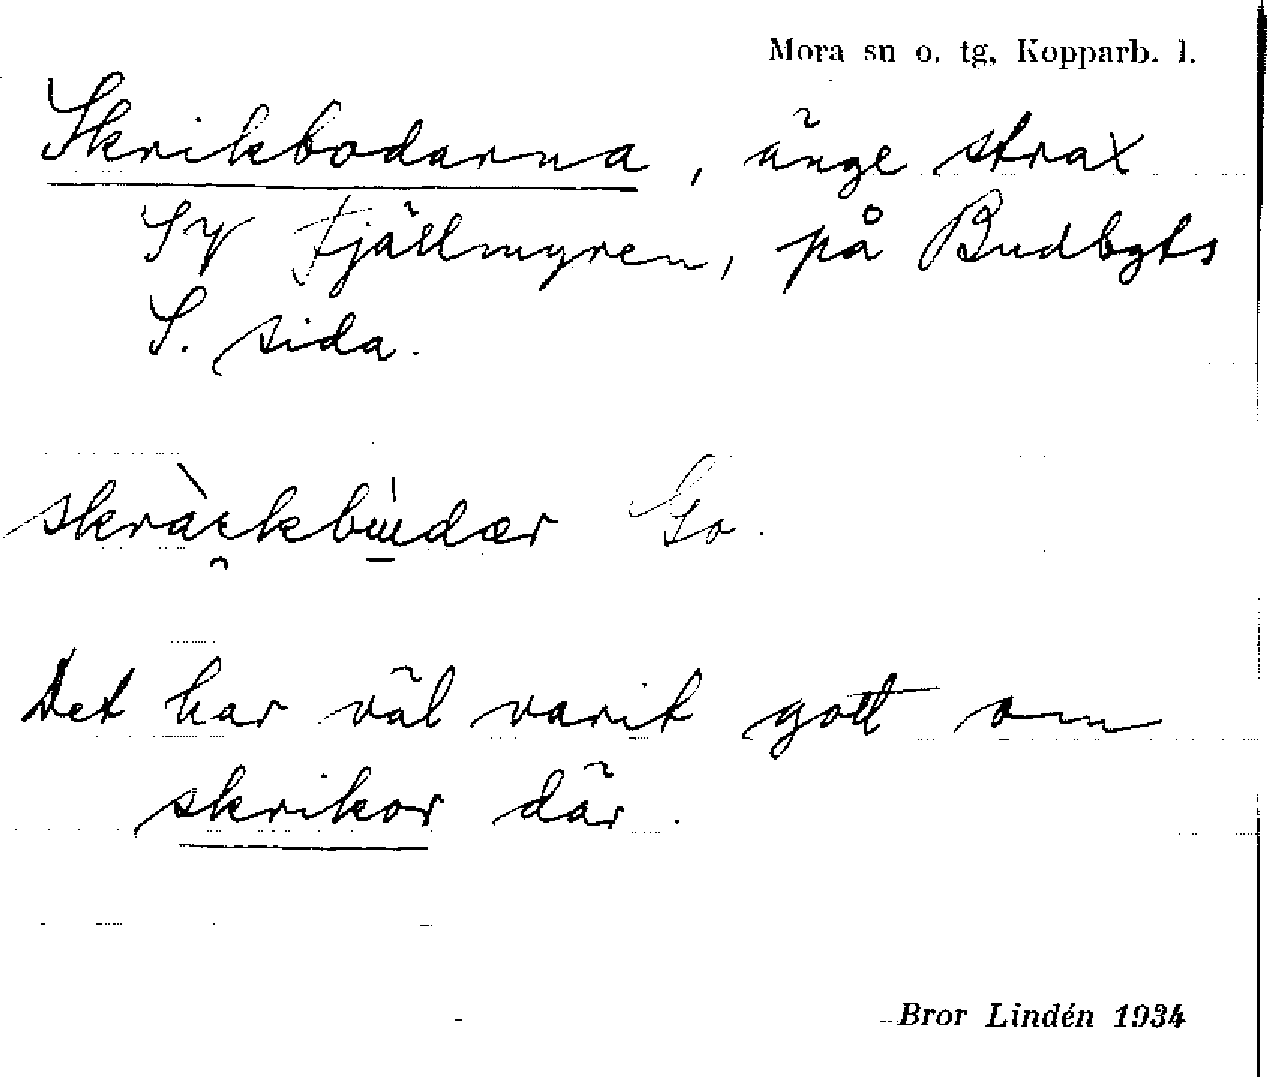 Mora sn o. tg, Kopparb. l.
Skrikbodarna, änge strax
SV Fjällmyren, på Budbgts
S. sida.
Go.
Det har väl varit gott om
skrikor där.
Bror Lindén 1934